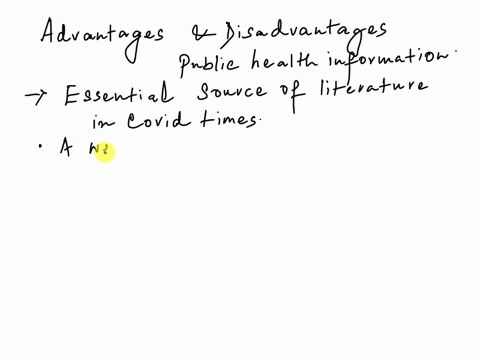 Advantages & Disadvantages
Public health information.
→ Essential source of literature
in Covid times.
• A